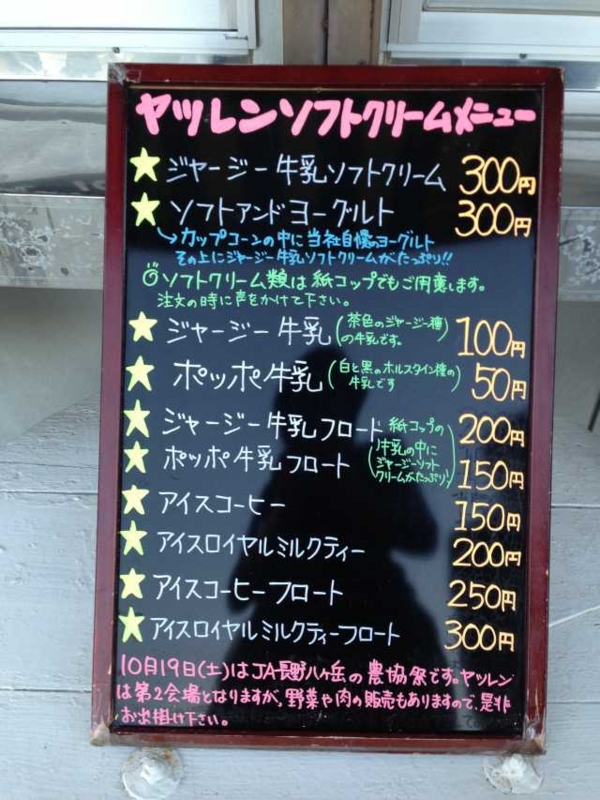 ヤツレンソフトクリームメニュー
★ジャージー牛乳ソフトクリーム 300円
★ソフトアンドヨーグルト 300円
→カップコーンの中に当社自慢のヨーグルト
その上にジャージー牛乳ソフトクリームがたっぷり!!
◎ソフトクリーム類は紙コップでもご用意します。
注文の時に声をかけて下さい。
★ジャージー牛乳(茶色のジャージー種の牛乳です。) 100円
★ポッポ牛乳(白と黒のホルスタイン種の牛乳です) 50円
★ジャージー牛乳フロート 200円
★ポッポ牛乳フロート 150円
(紙コップの
牛乳の中に
ジャージーソフト
クリームがたっぷり!)
★アイスコーヒー 150円
★アイスロイヤルミルクティー 200円
★アイスコーヒーフロート 250円
★アイスロイヤルミルクティーフロート 300円
10月19日(土)はJA長野八ヶ岳の農協祭です。ヤツレン
は第2会場となりますが、野菜や肉の販売もありますので、是非
お出掛け下さい。